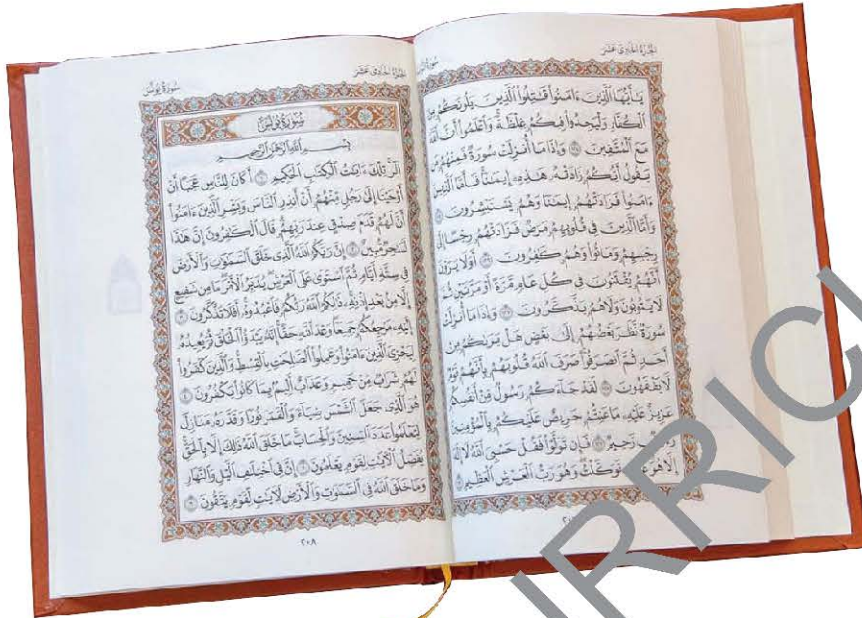 الجزء الحادي عشر
سورة
يَٰٓأَيُّهَا ٱلَّذِينَ ءَامَنُوا۟ قَٰتِلُوا۟ ٱلَّذِينَ يَلُونَكُم مِّنَ
ٱلْكُفَّارِ وَلْيَجِدُوا۟ فِيكُمْ غِلْظَةً وَٱعْلَمُوٓا۟ أَنَّ ٱللَّهَ
مَعَ ٱلْمُتَّقِينَ ١٢٣ وَإِذَا مَآ أُنزِلَتْ سُورَةٌ فَمِنْهُم مَّن
يَقُولُ أَيُّكُمْ زَادَتْهُ هَٰذِهِۦٓ إِيمَٰنًا فَأَمَّا ٱلَّذِينَ
ءَامَنُوا۟ فَزَادَتْهُمْ إِيمَٰنًا وَهُمْ يَسْتَبْشِرُونَ ١٢٤
وَأَمَّا ٱلَّذِينَ فِى قُلُوبِهِم مَّرَضٌ فَزَادَتْهُمْ رِجْسًا إِلَىٰ
رِجْسِهِمْ وَمَاتُوا۟ وَهُمْ كَٰفِرُونَ ١٢٥ أَوَلَا يَرَوْنَ
أَنَّهُمْ يُفْتَنُونَ فِى كُلِّ عَامٍ مَّرَّةً أَوْ مَرَّتَيْنِ ثُمَّ
لَا يَتُوبُونَ وَلَا هُمْ يَذَّكَّرُونَ ١٢٦ وَإِذَا مَآ أُنزِلَتْ
سُورَةٌ نَّظَرَ بَعْضُهُمْ إِلَىٰ بَعْضٍ هَلْ يَرَىٰكُم مِّنْ
أَحَدٍ ثُمَّ ٱنصَرَفُوا۟ صَرَفَ ٱللَّهُ قُلُوبَهُم بِأَنَّهُمْ قَوْمٌ
لَّا يَفْقَهُونَ ١٢٧ لَقَدْ جَآءَكُمْ رَسُولٌ مِّنْ أَنفُسِكُمْ
عَزِيزٌ عَلَيْهِ مَا عَنِتُّمْ حَرِيصٌ عَلَيْكُم بِٱلْمُؤْمِنِينَ
رَّحِيمٌ ١٢٨ فَإِن تَوَلَّوْا۟ فَقُلْ حَسْبِىَ ٱللَّهُ لَآ إِلَٰهَ
إِلَّا هُوَ تَوَكَّلْتُ وَهُوَ رَبُّ ٱلْعَرْشِ ٱلْعَظِيمِ ١٢٩
الجزء الحادي عشر
سورة يونس
سورة يونس
بِسْمِ ٱللَّهِ ٱلرَّحْمَٰنِ ٱلرَّحِيمِ
الٓر تِلْكَ ءَايَٰتُ ٱلْكِتَٰبِ ٱلْحَكِيمِ ١ أَكَانَ لِلنَّاسِ عَجَبًا أَنْ
أَوْحَيْنَآ إِلَىٰ رَجُلٍ مِّنْهُمْ أَنْ أَنذِرِ ٱلنَّاسَ وَبَشِّرِ ٱلَّذِينَ ءَامَنُوٓا۟
أَنَّ لَهُمْ قَدَمَ صِدْقٍ عِندَ رَبِّهِمْ قَالَ ٱلْكَٰفِرُونَ إِنَّ هَٰذَا
لَسَٰحِرٌ مُّبِينٌ ٢ إِنَّ رَبَّكُمُ ٱللَّهُ ٱلَّذِى خَلَقَ ٱلسَّمَٰوَٰتِ وَٱلْأَرْضَ
فِى سِتَّةِ أَيَّامٍ ثُمَّ ٱسْتَوَىٰ عَلَى ٱلْعَرْشِ يُدَبِّرُ ٱلْأَمْرَ مَا مِن شَفِيعٍ
إِلَّا مِنۢ بَعْدِ إِذْنِهِۦ ذَٰلِكُمُ ٱللَّهُ رَبُّكُمْ فَٱعْبُدُوهُ أَفَلَا تَذَكَّرُونَ ٣
إِلَيْهِ مَرْجِعُكُمْ جَمِيعًا وَعْدَ ٱللَّهِ حَقًّا إِنَّهُۥ يَبْدَؤُا۟ ٱلْخَلْقَ ثُمَّ يُعِيدُهُۥ
لِيَجْزِىَ ٱلَّذِينَ ءَامَنُوا۟ وَعَمِلُوا۟ ٱلصَّٰلِحَٰتِ بِٱلْقِسْطِ وَٱلَّذِينَ كَفَرُوا۟
لَهُمْ شَرَابٌ مِّنْ حَمِيمٍ وَعَذَابٌ أَلِيمٌۢ بِمَا كَانُوا۟ يَكْفُرُونَ ٤
هُوَ ٱلَّذِى جَعَلَ ٱلشَّمْسَ ضِيَآءً وَٱلْقَمَرَ نُورًا وَقَدَّرَهُۥ مَنَازِلَ
لِتَعْلَمُوا۟ عَدَدَ ٱلسِّنِينَ وَٱلْحِسَابَ مَا خَلَقَ ٱللَّهُ ذَٰلِكَ إِلَّا بِٱلْحَقِّ
يُفَصِّلُ ٱلْءَايَٰتِ لِقَوْمٍ يَعْلَمُونَ ٥ إِنَّ فِى ٱخْتِلَٰفِ ٱلَّيْلِ وَٱلنَّهَارِ
وَمَا خَلَقَ ٱللَّهُ فِى ٱلسَّمَٰوَٰتِ وَٱلْأَرْضِ لَءَايَٰتٍ لِّقَوْمٍ يَتَّقُونَ ٦
٢٠٨